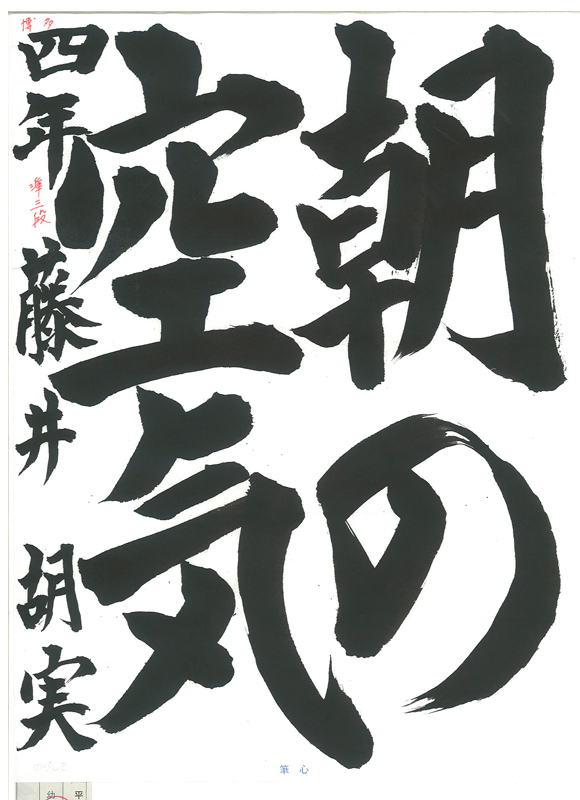 朝の
空気
四年 藤井 胡実
博多
準三段
筆心
平
幼